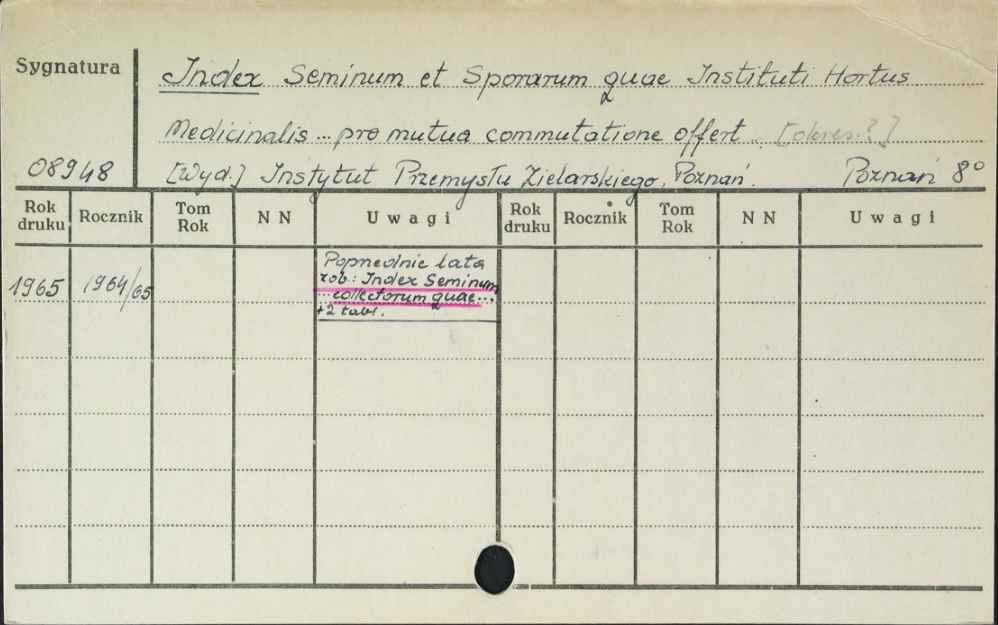 Sygnatura
Index Seminum et Sporarum quae Instituti Hortus
Medicinalis ... pro mutua commutatione offert .. [okres.?]
08948 [Wyd.] Instytut Przemysłu Zielarskiego, Poznań. Poznań 8°
Rok druku Rocznik Tom Rok N N Uwagi Rok druku Rocznik Tom Rok N N Uwagi
1965 1964/65
Poprzednie lata
zob.: Index Seminum
... collectorum quae...
+2 tabl.